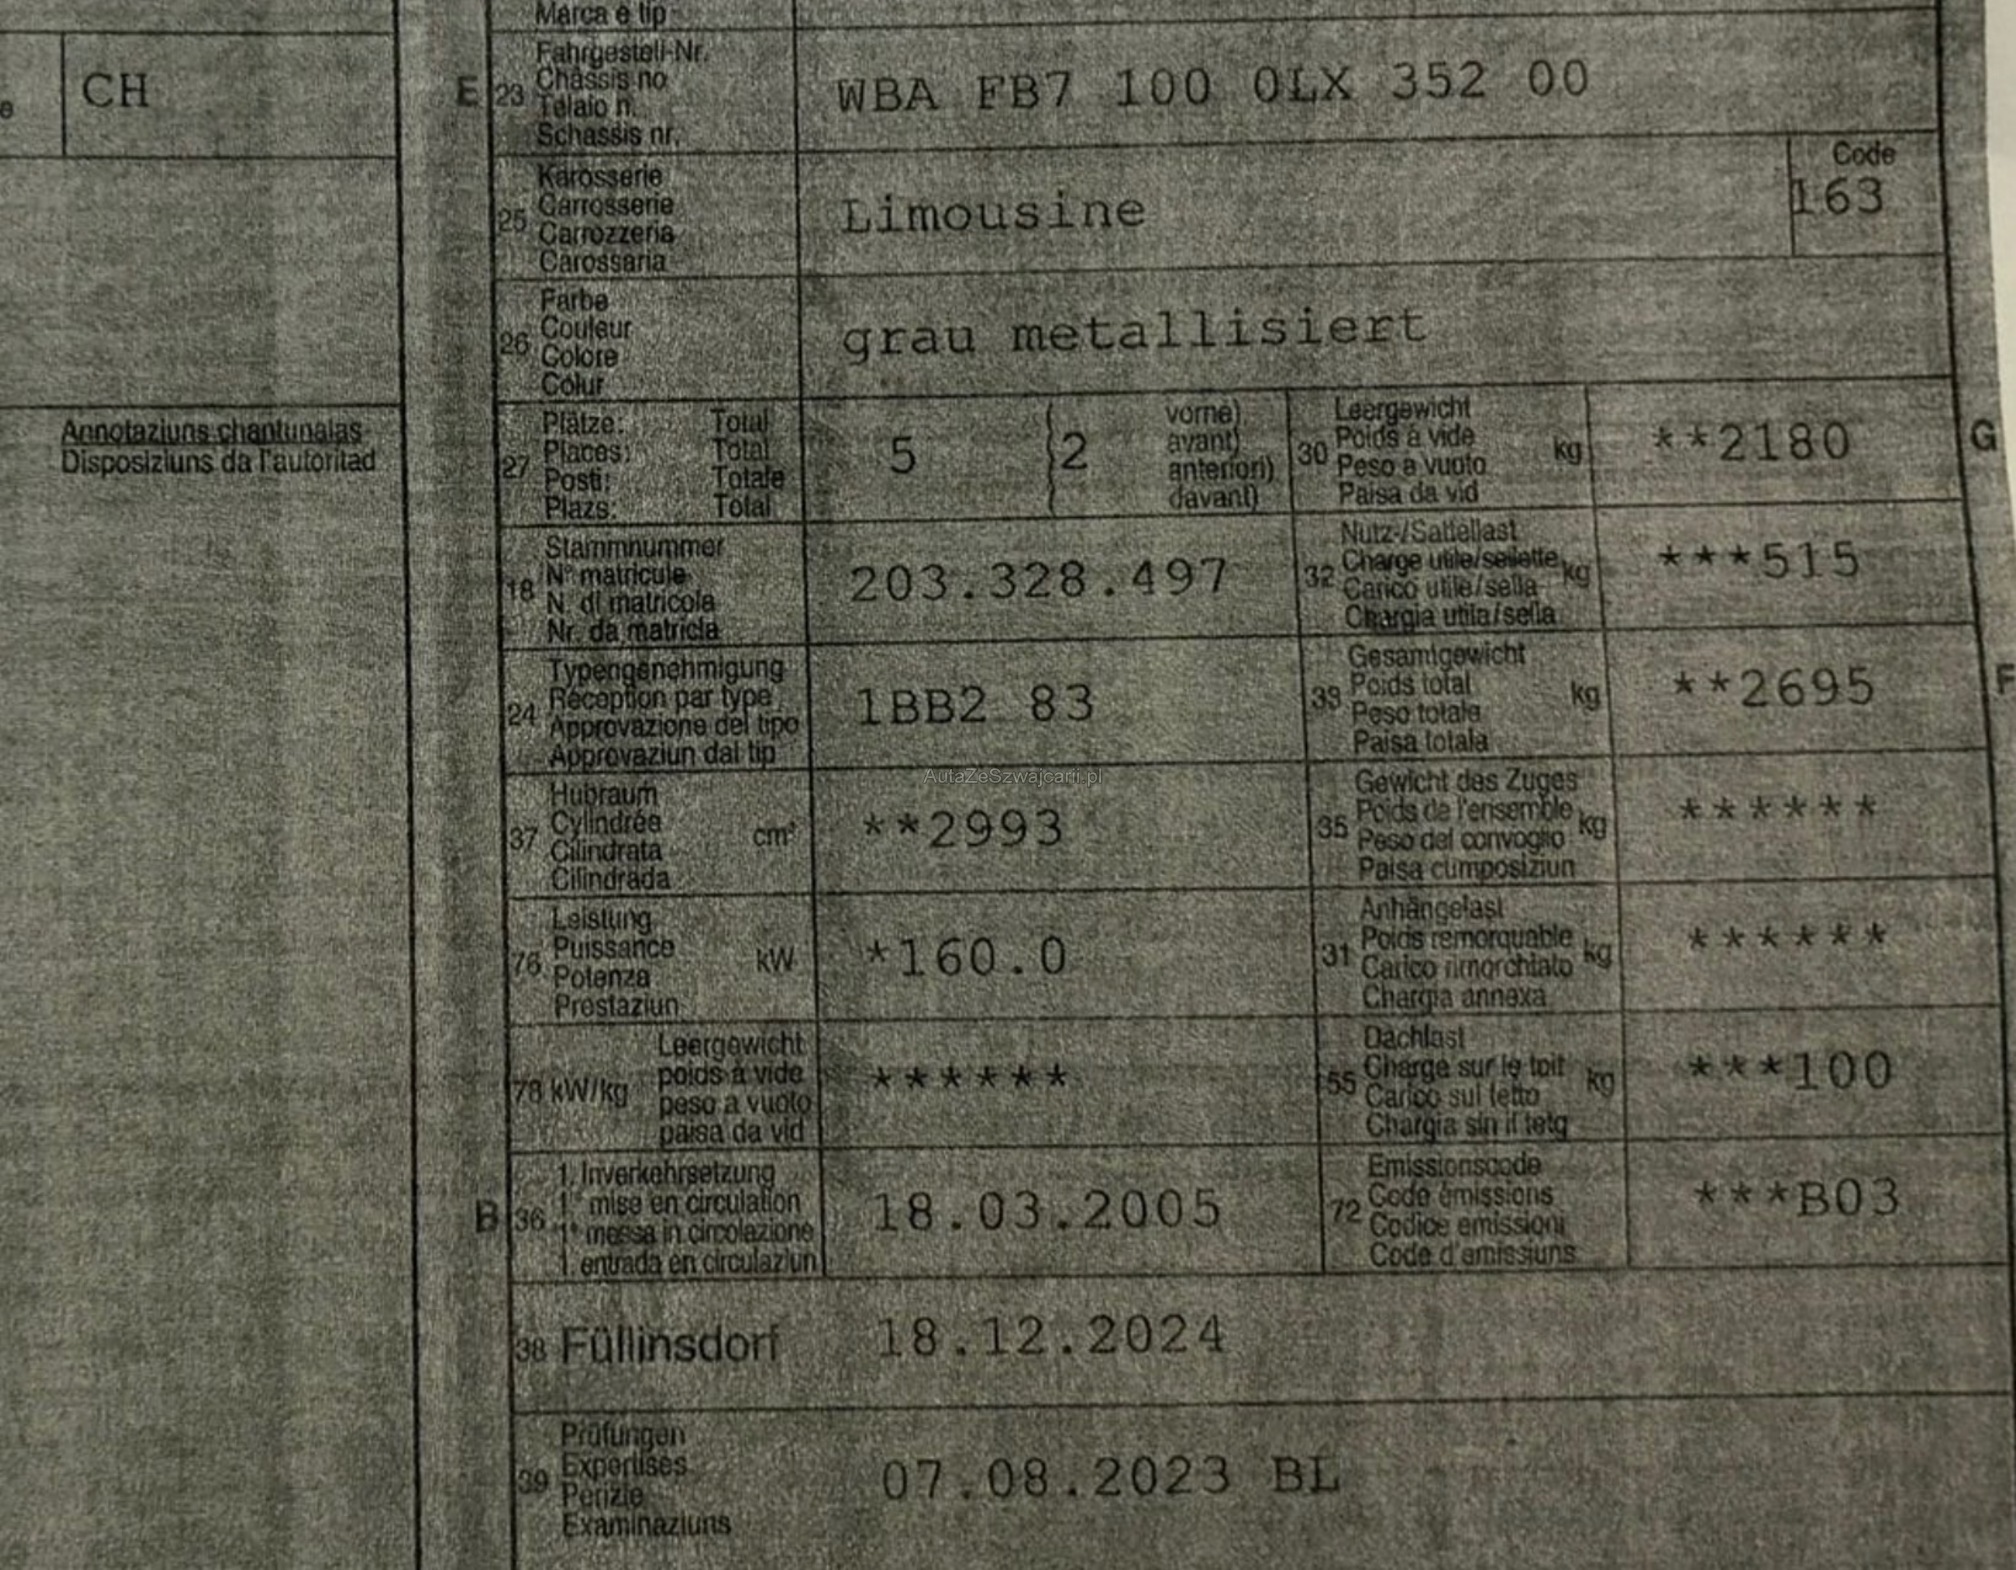 Marca e tip
CH
E 23 Fahrgestell-Nr.
Châssis no
Telaio n.
Schassis nr.
WBA FB7 100 0LX 352 00
25 Karosserie
Carrosserie
Carrozzeria
Carossaria
Limousine
Code
163
26 Farbe
Couleur
Colore
Colur
grau metallisiert
Annotaziuns chantunalas
Disposiziuns da l'autoritad
27 Plätze: Total
Places: Total
Posti: Totale
Plazs: Total
5 2
vorne)
avant)
anteriori)
davant)
30 Leergewicht
Poids à vide
Peso a vuoto
Paisa da vid
kg **2180 G
18 Stammnummer
N° matricule
N. di matricola
Nr. da matricla
203.328.497
32 Nutz-/Sattellast
Charge utile/sellette
Carico utile/sella
Chargia utila/sella
kg ***515
24 Typengenehmigung
Réception par type
Approvazione del tipo
Approvaziun dal tip
1BB2 83
33 Gesamtgewicht
Poids total
Peso totale
Paisa totala
kg **2695 F
AutaZeSzwajcarii.pl
37 Hubraum
Cylindrée
Cilindrata
Cilindrada
cm³ **2993
35 Gewicht des Zuges
Poids de l'ensemble
Peso del convoglio
Paisa cumposiziun
kg ******
76 Leistung
Puissance
Potenza
Prestaziun
kW *160.0
31 Anhängelast
Poids remorquable
Carico rimorchiato
Chargia annexa
kg ******
78 kW/kg Leergewicht
poids à vide
peso a vuoto
paisa da vid
******
55 Dachlast
Charge sur le toit
Carico sul tetto
Chargia sin il tetg
kg ***100
B 36 1. Inverkehrsetzung
1re mise en circulation
1a messa in circolazione
1. entrada en circulaziun
18.03.2005
72 Emissionscode
Code émissions
Codice emissioni
Code d'emissiuns
***B03
38 Füllinsdorf 18.12.2024
39 Prüfungen
Expertises
Perizie
Examinaziuns
07.08.2023 BL